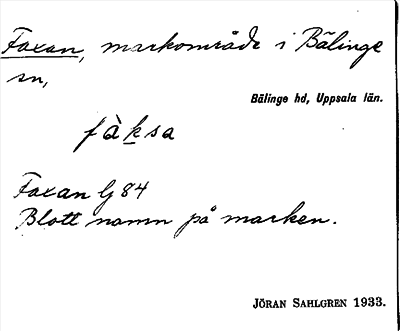 Faxan, markområde i Bälinge
sn,
Bälinge hd, Uppsala län.
fàksa
Faxan Lg 84
Blott namn på marken.
JÖRAN SAHLGREN 1933.